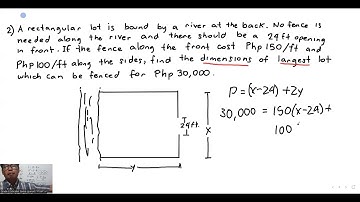 2) A rectangular lot is bound by a river at the back. No fence is
needed along the river and there should be a 24 ft opening
in front. If the fence along the front cost Php 150/ft and
Php 100/ft along the sides, find the dimensions of largest lot
which can be fenced for Php 30,000.
P = (x-24) + 2y
30,000 = 150(x-24) +
100
24ft.
x
y